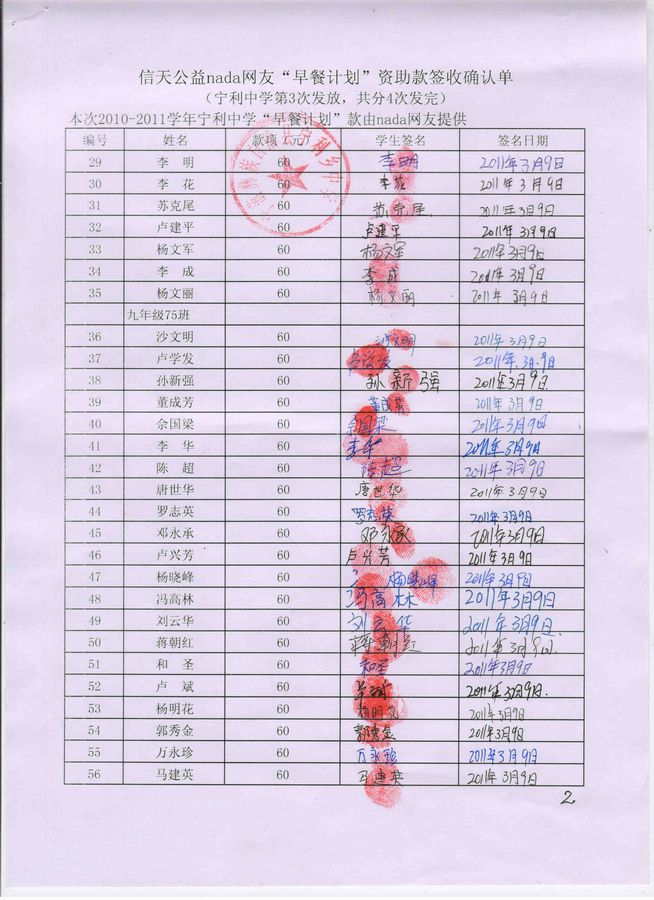 信天公益nada网友“早餐计划”资助款签收确认单
（宁利中学第3次发放，共分4次发完）
本次2010-2011学年宁利中学“早餐计划”款由nada网友提供
编号 姓名 款项（元） 学生签名 签名日期
29 李 明 60 李明 2011年3月9日
30 李 花 60 李花 2011年3月9日
31 苏克尾 60 苏克尾 2011年3月9日
32 卢建平 60 卢建平 2011年3月9日
33 杨文军 60 杨文军 2011年3月9日
34 李 成 60 李成 2011年3月9日
35 杨文丽 60 杨文丽 2011年3月9日
九年级75班
36 沙文明 60 沙文明 2011年3月9日
37 卢学发 60 卢学发 2011年3月9日
38 孙新强 60 孙新强 2011年3月9日
39 董成芳 60 董成芳 2011年3月9日
40 余国梁 60 余国梁 2011年3月9日
41 李 华 60 李华 2011年3月9日
42 陈 超 60 陈超 2011年3月9日
43 唐世华 60 唐世华 2011年3月9日
44 罗志英 60 罗志英 2011年3月9日
45 邓永承 60 邓永承 2011年3月9日
46 卢兴芳 60 卢兴芳 2011年3月9日
47 杨晓峰 60 杨晓峰 2011年3月9日
48 冯高林 60 冯高林 2011年3月9日
49 刘云华 60 刘云华 2011年3月9日
50 蒋朝红 60 蒋朝红 2011年3月9日
51 和 圣 60 和圣 2011年3月9日
52 卢 斌 60 卢斌 2011年3月9日
53 杨明花 60 杨明花 2011年3月9日
54 郭秀金 60 郭秀金 2011年3月9日
55 万永珍 60 万永珍 2011年3月9日
56 马建英 60 马建英 2011年3月9日
2